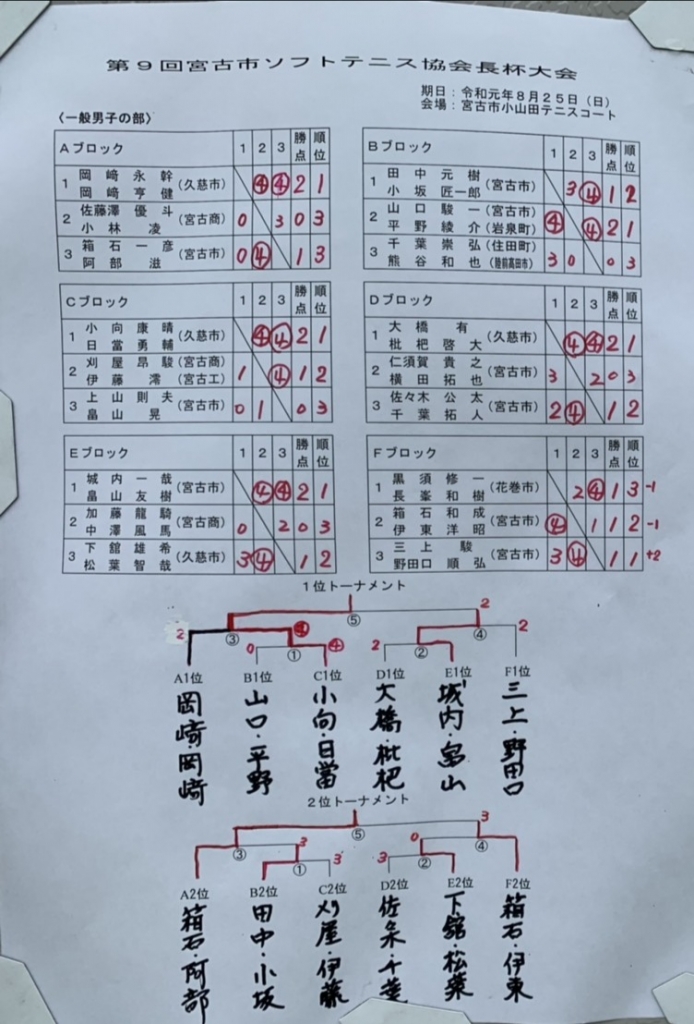 第9回宮古市ソフトテニス協会長杯大会
期日：令和元年8月25日（日）
会場：宮古市小山田テニスコート
〈一般男子の部〉
Aブロック 1 2 3 勝点 順位
1 岡﨑永幹 岡﨑亨健 (久慈市) ④ ④ 2 1
2 佐藤澤優斗 小林凌 (宮古商) 0 3 0 3
3 箱石一彦 阿部滋 (宮古市) 0 ④ 1 3
Bブロック 1 2 3 勝点 順位
1 田中元樹 小坂匠一郎 (宮古市) 3 ④ 1 2
2 山口駿一 (宮古市) 平野綾介 (岩泉町) ④ ④ 2 1
3 千葉崇弘 (住田町) 熊谷和也 (陸前高田市) 3 0 0 3
Cブロック 1 2 3 勝点 順位
1 小向康晴 日當勇輔 (久慈市) ④ ④ 2 1
2 刈屋昂駿 (宮古商) 伊藤澪 (宮古工) 1 ④ 1 2
3 上山則夫 畠山晃 (宮古市) 0 1 0 3
Dブロック 1 2 3 勝点 順位
1 大橋有 枇杷啓大 (久慈市) ④ ④ 2 1
2 仁須賀貴之 横田拓也 (宮古市) 3 2 0 3
3 佐々木公太 千葉拓人 (宮古市) 2 ④ 1 2
Eブロック 1 2 3 勝点 順位
1 城内一哉 畠山友樹 (宮古市) ④ ④ 2 1
2 加藤龍騎 中澤風馬 (宮古商) 0 2 0 3
3 下舘雄希 松葉智哉 (久慈市) 3 ④ 1 2
Fブロック 1 2 3 勝点 順位
1 黒須修一 長峯和樹 (花巻市) 2 ④ 1 3 -1
2 箱石和成 伊東洋昭 (宮古市) ④ 1 1 2 -1
3 三上駿 野田口順弘 (宮古市) 3 ④ 1 1 +2
1位トーナメント
⑤ 2
2 ③ ④ ④ 2
0 ① ④ 2 ②
A1位 B1位 C1位 D1位 E1位 F1位
岡崎・岡崎
山口・平野
小向・日當
大橋・枇杷
城内・畠山
三上・野田口
2位トーナメント
⑤ 3
③ 3 0 ④
① 3 3 ②
A2位 B2位 C2位 D2位 E2位 F2位
箱石・阿部
田中・小坂
刈屋・伊藤
佐々木・千葉
下舘・松葉
箱石・伊東